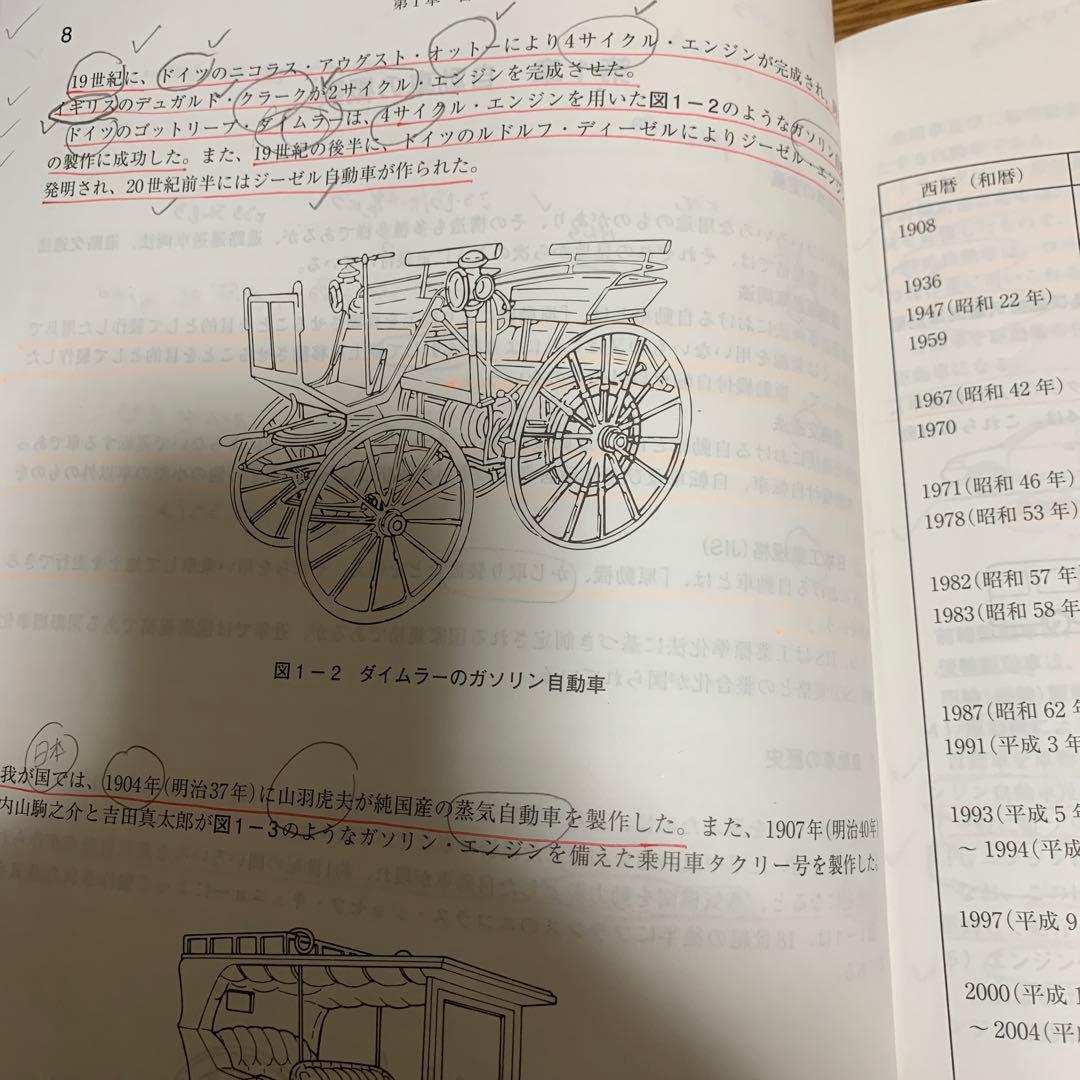 8
第1章
19世紀に、ドイツのニコラス・アウグスト・オットーにより4サイクル・エンジンが完成され、
イギリスのデュガルド・クラークが2サイクル・エンジンを完成させた。
ドイツのゴットリーブ・ダイムラーは、4サイクル・エンジンを用いた図1-2のようなガソリン
の製作に成功した。また、19世紀の後半に、ドイツのルドルフ・ディーゼルによりジーゼル・エンジン
発明され、20世紀前半にはジーゼル自動車が作られた。
図1-2 ダイムラーのガソリン自動車
日本
我が国では、1904年(明治37年)に山羽虎夫が純国産の蒸気自動車を製作した。また、1907年(明治40年)
内山駒之介と吉田真太郎が図1-3のようなガソリン・エンジンを備えた乗用車タクリー号を製作した。
西暦(和暦)
1908
1936
1947(昭和22年)
1959
1967(昭和42年)
1970
1971(昭和46年)
1978(昭和53年)
1982(昭和57年
1983(昭和58年
1987(昭和62年
1991(平成3年
1993(平成5年
~1994(平成
1997(平成9
2000(平成1
~2004(平成